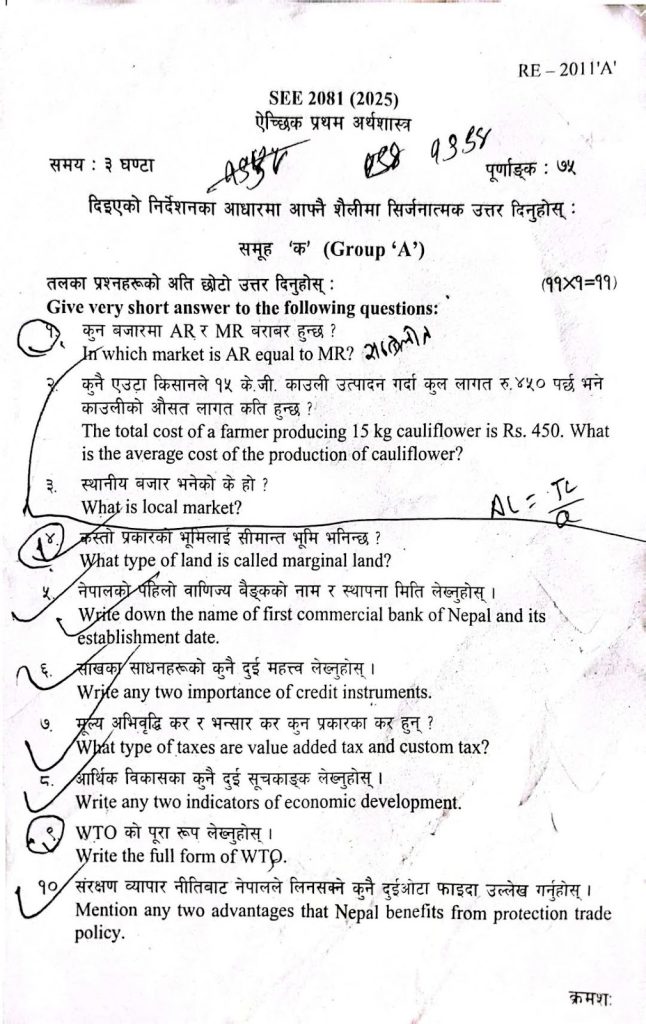 RE – 2011'A'
SEE 2081 (2025)
ऐच्छिक प्रथम अर्थशास्त्र
समय : ३ घण्टा
१३९४
पूर्णाङ्क : ७५
दिइएको निर्देशनका आधारमा आफ्नै शैलीमा सिर्जनात्मक उत्तर दिनुहोस् :
समूह 'क' (Group 'A')
तलका प्रश्नहरूको अति छोटो उत्तर दिनुहोस् : (११×१=११)
Give very short answer to the following questions:
१. कुन बजारमा AR र MR बराबर हुन्छ ?
In which market is AR equal to MR?
२. कुनै एउटा किसानले १५ के.जी. काउली उत्पादन गर्दा कुल लागत रु.४५० पर्छ भने
काउलीको औसत लागत कति हुन्छ ?
The total cost of a farmer producing 15 kg cauliflower is Rs. 450. What
is the average cost of the production of cauliflower?
३. स्थानीय बजार भनेको के हो ?
What is local market?
AC = TC
Q
४. कस्तो प्रकारको भूमिलाई सीमान्त भूमि भनिन्छ ?
What type of land is called marginal land?
५. नेपालको पहिलो वाणिज्य बैङ्कको नाम र स्थापना मिति लेख्नुहोस् ।
Write down the name of first commercial bank of Nepal and its
establishment date.
६. साखका साधनहरूको कुनै दुई महत्त्व लेख्नुहोस् ।
Write any two importance of credit instruments.
७. मूल्य अभिवृद्धि कर र भन्सार कर कुन प्रकारका कर हुन् ?
What type of taxes are value added tax and custom tax?
८. आर्थिक विकासका कुनै दुई सूचकाङ्क लेख्नुहोस् ।
Write any two indicators of economic development.
९. WTO को पूरा रूप लेख्नुहोस् ।
Write the full form of WTO.
१० संरक्षण व्यापार नीतिबाट नेपालले लिनसक्ने कुनै दुईओटा फाइदा उल्लेख गर्नुहोस् ।
Mention any two advantages that Nepal benefits from protection trade
policy.
क्रमशः